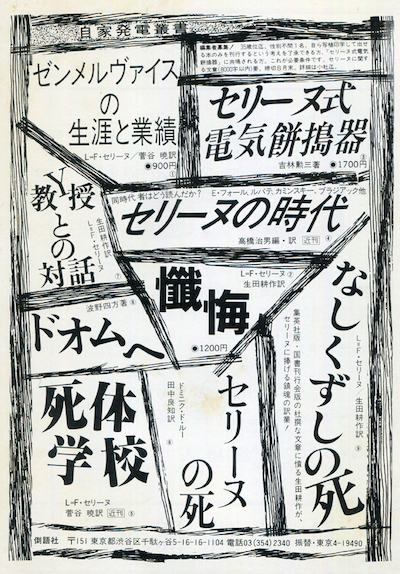 自家発電叢書
編集者募集! 35歳位迄、性別不問1名。自ら写植印字して出せ
る本のみを刊行するという考えを了承できる方、「セリーヌ式電気
餅搗器」に共鳴される方。これが必要条件です。セリーヌに関す
る文章(8000字以内)要。締切8月末。詳細は小社迄。
ゼンメルヴァイス
の
生涯と業績
L=F・セリーヌ/菅谷 暁訳
●900円
セリーヌ式
電気餅搗器
吉林勲三著 ●1700円
Y教授
との
対話
生田耕作訳
L=F・セリーヌ
⑦
同時代者はどう読んだか? E・フォール、ルバテ、カミンスキー、ブラジアック他
セリーヌの時代
高橋治男編・訳 近刊 ④
懺悔
L=F・セリーヌ ②
生田耕作訳
●1200円
波野四方著 ⑧
ドオムへ
なしくずしの死
L=F・セリーヌ 生田耕作訳 ⑨
集英社版・国書刊行会版の杜撰な文章に憤る生田耕作が、
セリーヌに捧げる鎮魂の訳業!
死体
学校
L=F・セリーヌ
菅谷 暁訳 近刊 ⑤
ドミニク・ド・ルー
田中良知訳
⑥
セリーヌ
の死
倒語社 〒151 東京都渋谷区千駄ヶ谷5-16-16-1104 電話03(354)2340 振替・東京4-19490